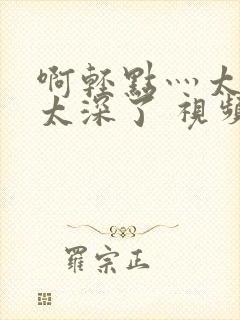 啊輕點灬太
太深了 視頻
羅宗正